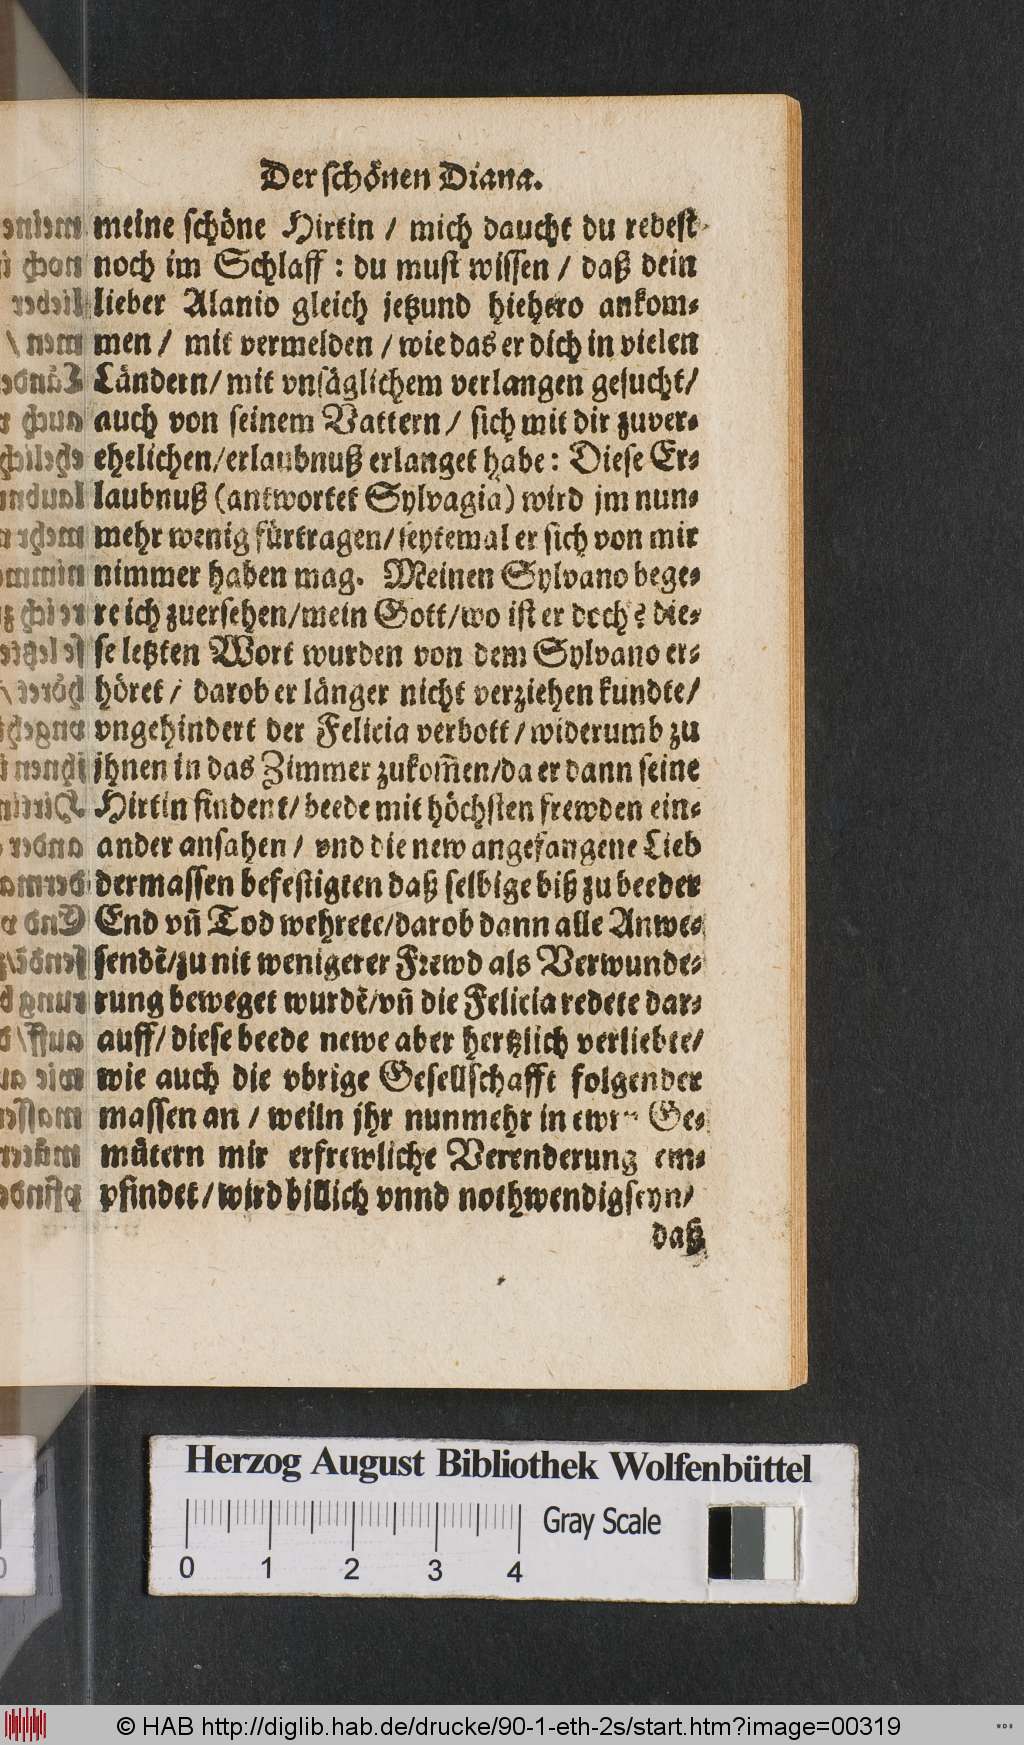 Der schönen Diana.
meine schöne Hirtin / mich daucht du redest
noch im Schlaff : du must wissen / daß dein
lieber Alanio gleich jetzund hiehero ankom-
men / mit vermelden / wie das er dich in vielen
Ländern/ mit vnsäglichem verlangen gesucht/
auch von seinem Vattern / sich mit dir zuver-
ehelichen/erlaubnuß erlanget habe: Diese Er-
laubnuß (antwortet Sylvagia) wird jm nun-
mehr wenig fürtragen/ seytemal er sich von mir
nimmer haben mag. Meinen Sylvano bege-
re ich zuersehen/mein Gott/wo ist er doch? die-
se letzten Wort wurden von dem Sylvano er-
höret / darob er länger nicht verziehen kundte/
vngehindert der Felicia verbott/widerumb zu
jhnen in das Zimmer zukom̃en/da er dann seine
Hirtin findent/ beede mit höchsten frewden ein-
ander ansahen / vnd die new angefangene Lieb
dermassen befestigten daß selbige biß zu beeder
End vñ Tod wehrete/darob dann alle Anwe-
sendẽ/zu nit wenigerer Frewd als Verwunde-
rung beweget wurdẽ/vñ die Felicia redete dar-
auff/ diese beede newe aber hertzlich verliebte/
wie auch die vbrige Gesellschafft folgender
massen an / weiln jhr nunmehr in ewrn Ge-
mütern mir erfrewliche Verenderung em-
pfindet/wird billich vnnd nothwendig seyn/
daß
Herzog August Bibliothek Wolfenbüttel
0 1 2 3 4
Gray Scale
© HAB http://diglib.hab.de/drucke/90-1-eth-2s/start.htm?image=00319